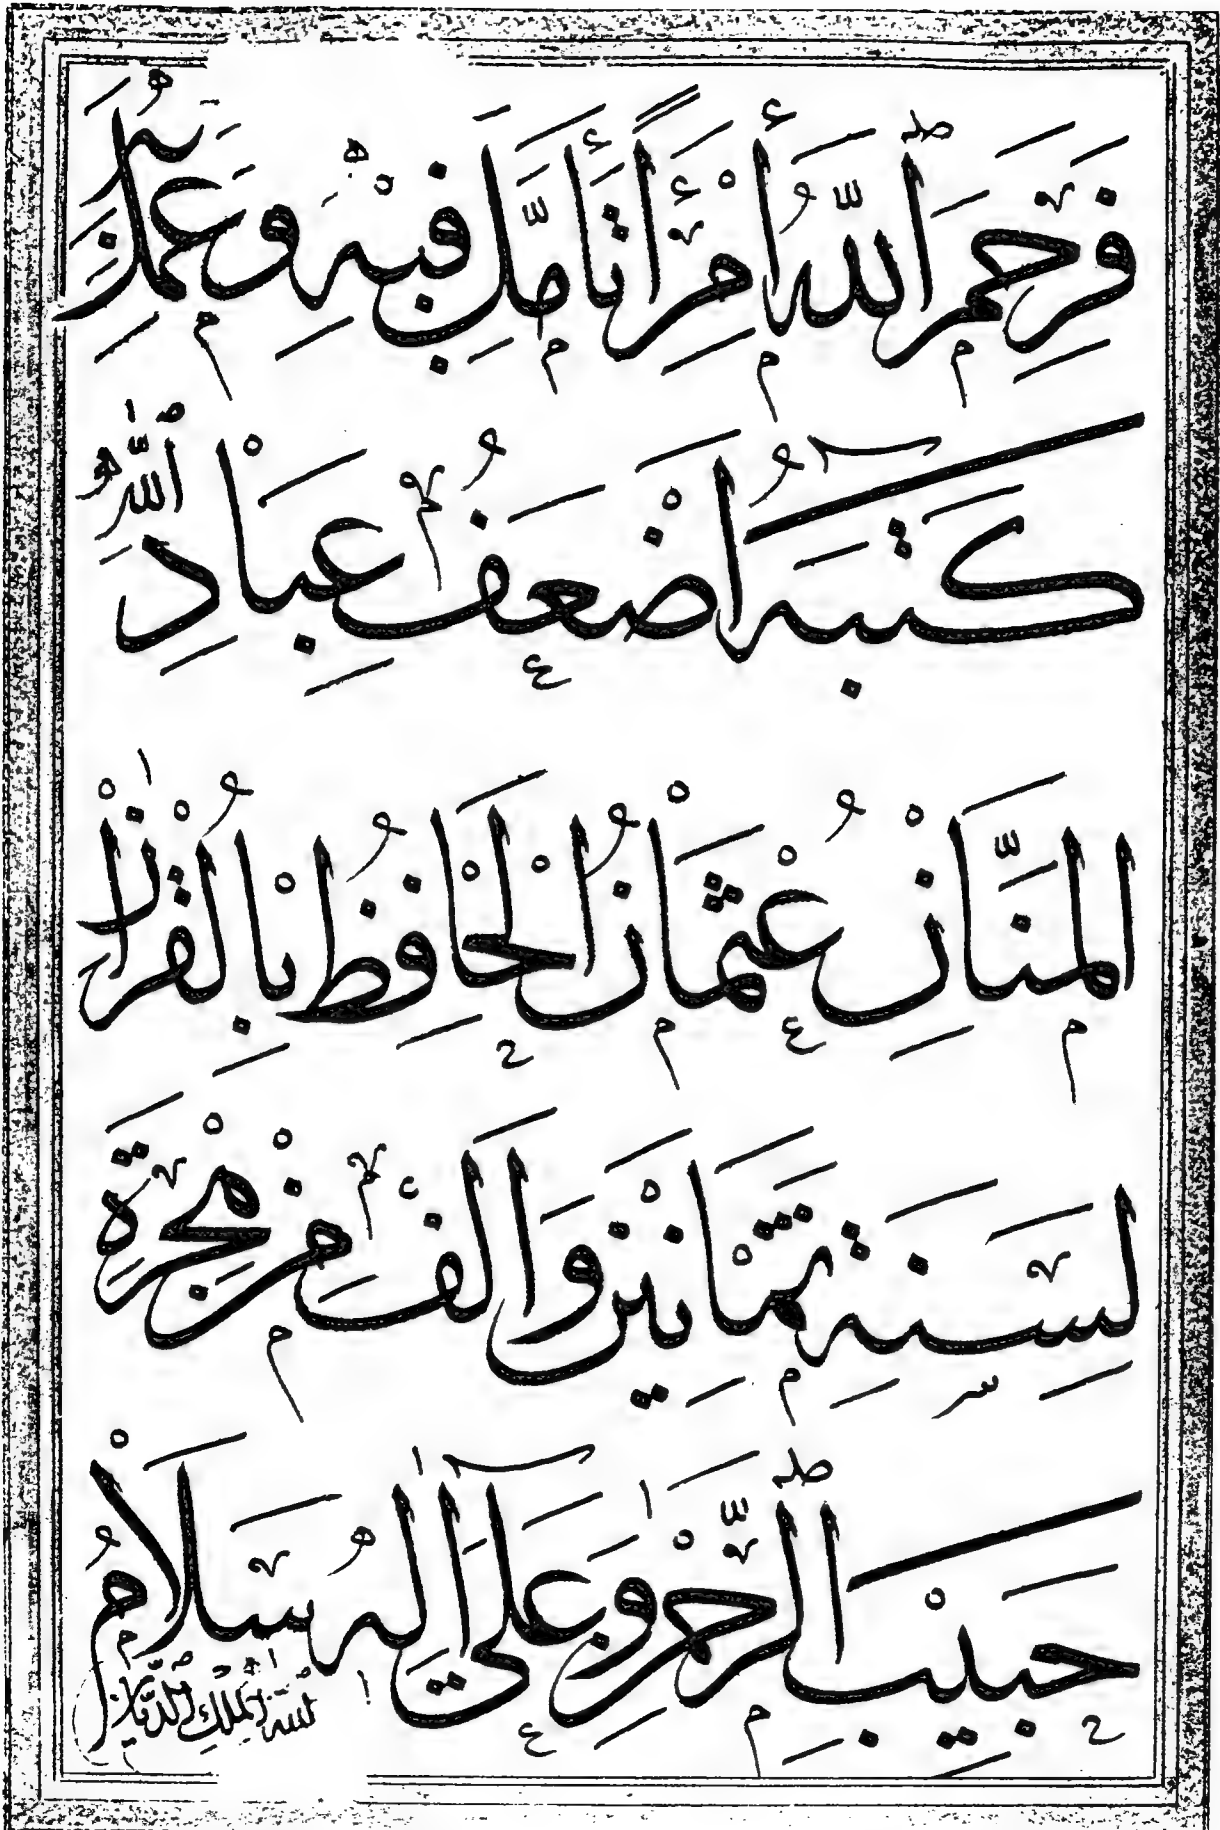 فَرَحِمَ ٱللّٰهُ أَمْرَأً تَأَمَّلَ فِيهِ وَعَمِلَ
كَتَبَهُ اَضْعَفُ عِبَادِ اللّٰهِ
الْمَنَّانِ عُثْمَانُ الْحَافِظُ بِالْقُرْاٰنِ
لِسَنَةِ ثَمَانِينَ وَاَلْفٍ مِنْ هِجْرَةِ
حَبِيبِ ٱلرَّحْمٰنِ وَعَلَى آلِهِ سَلَامُ
ٱللّٰهِ ٱلْمَلِكِ ٱلدَّيَّانِ